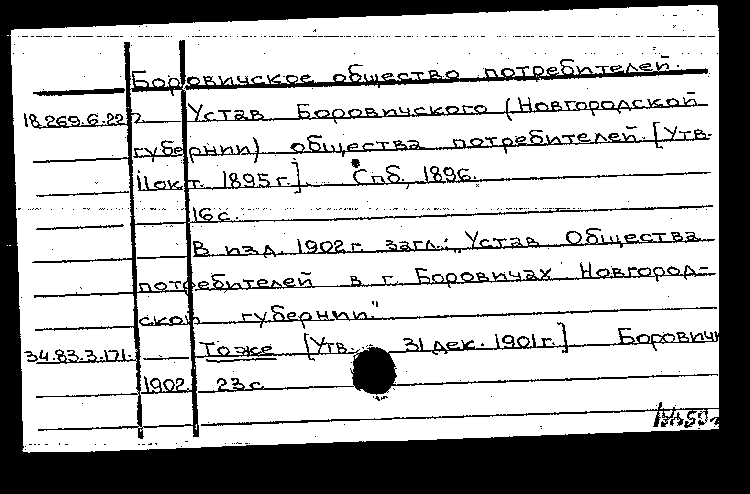 Боровичское общество потребителей.
18.269.6.22 Устав Боровичского (Новгородской
губернии) общества потребителей. [Утв.
11 окт. 1895 г.]. Спб, 1896.
16 с.
В изд. 1902 г. загл.: „Устав Общества
потребителей в г. Боровичах Новгород-
ской губернии."
34.83.3.171. Тоже [Утв. 31 дек. 1901 г.] Боровичи
1902. 23 с